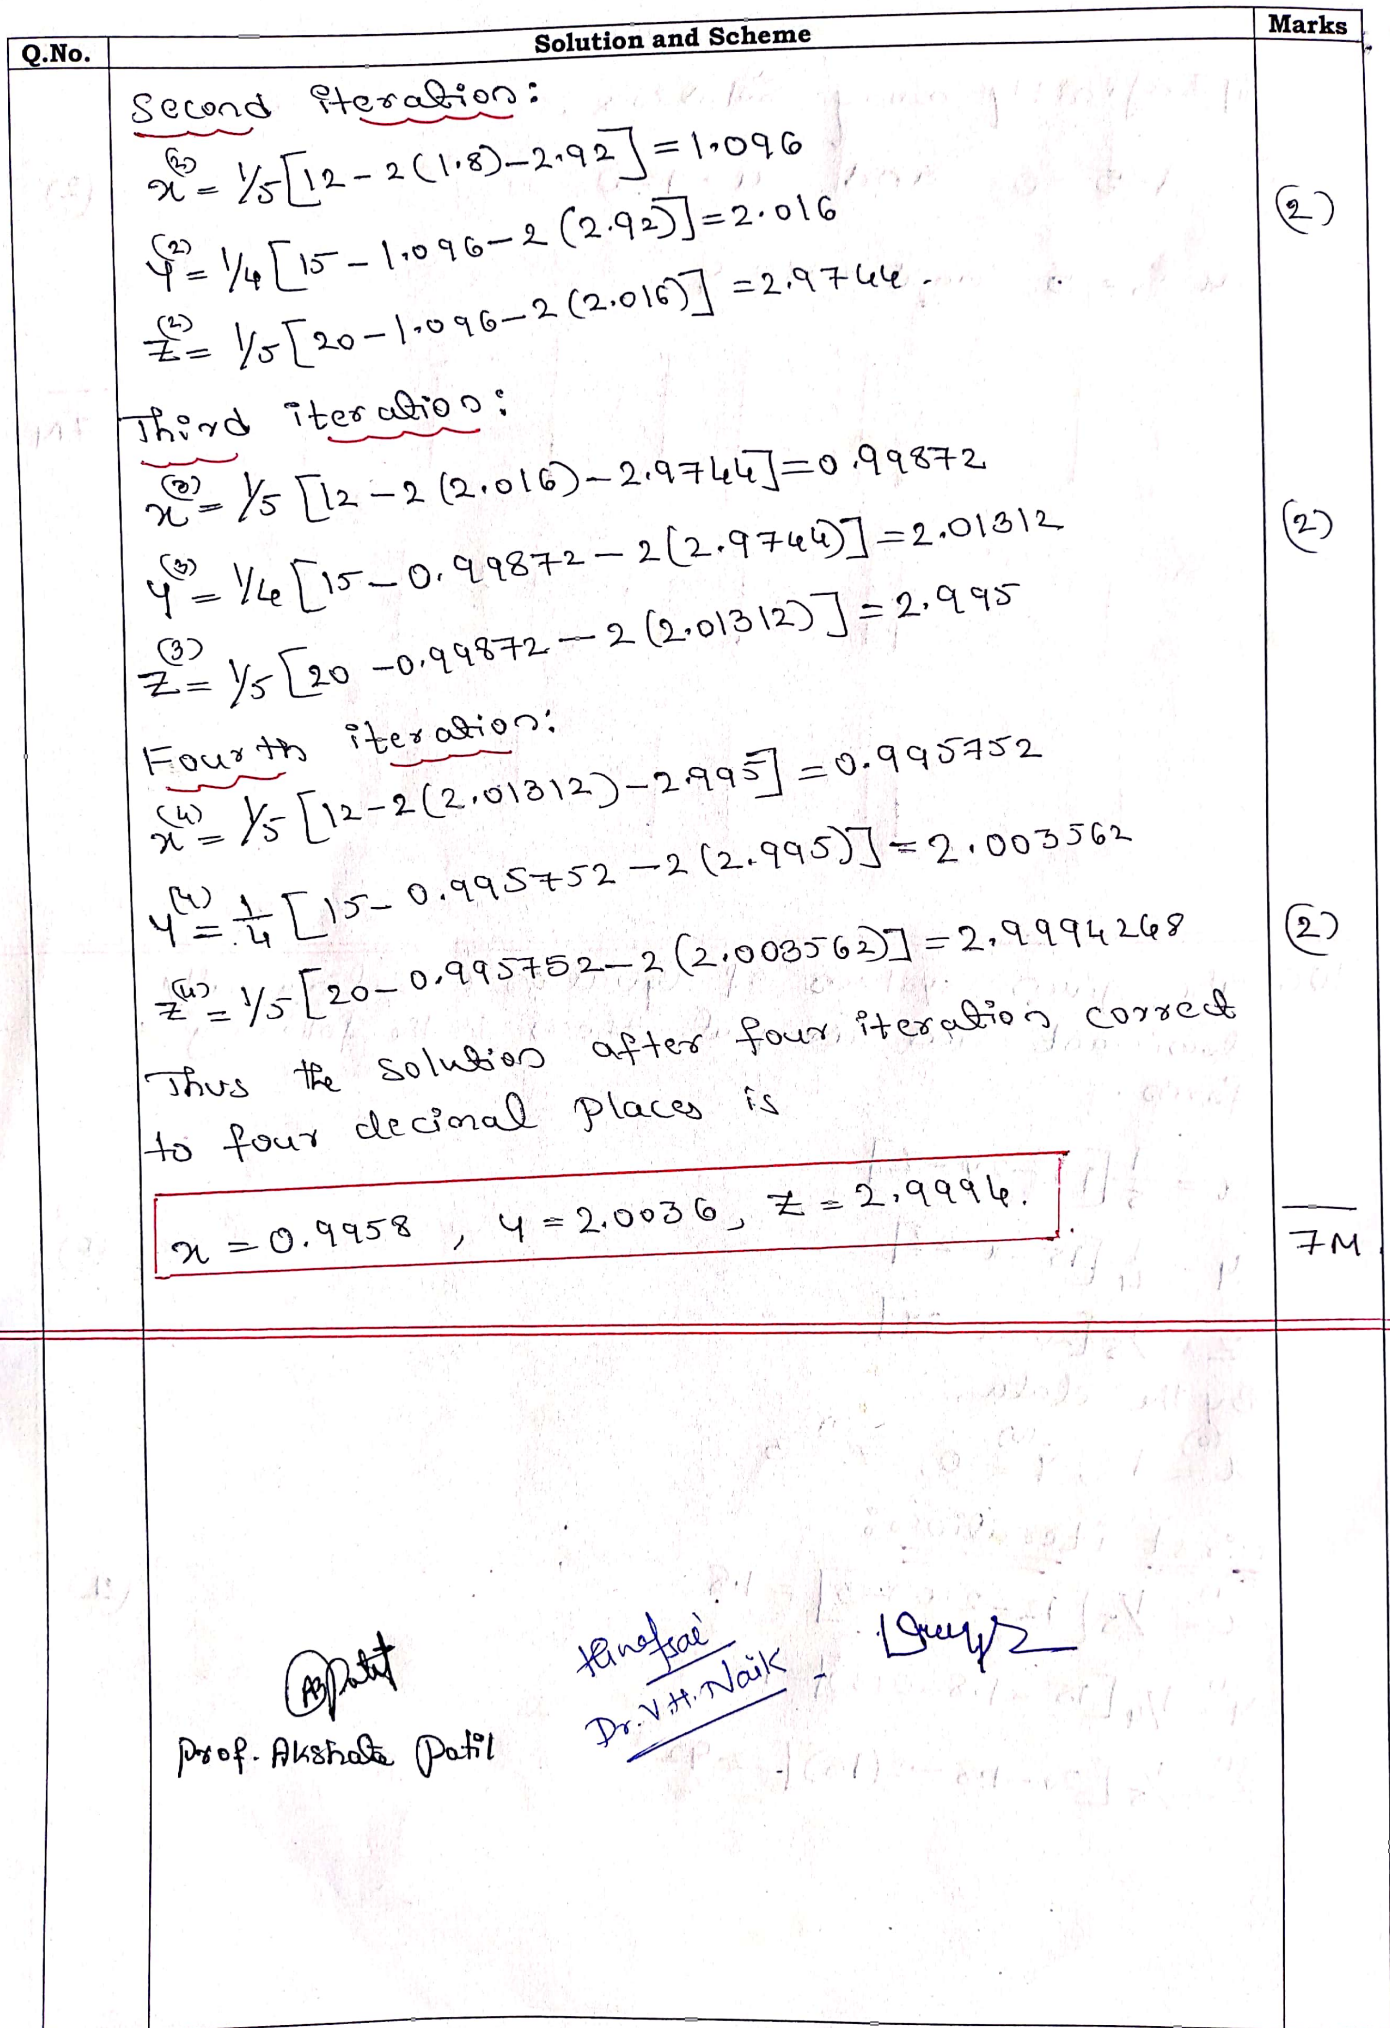 Q.No. Solution and Scheme Marks
Second iteration:
x⁽²⁾ = 1/5 [12 - 2(1.8) - 2.92] = 1.096
y⁽²⁾ = 1/4 [15 - 1.096 - 2(2.92)] = 2.016 (2)
z⁽²⁾ = 1/5 [20 - 1.096 - 2(2.016)] = 2.9744.
Third iteration:
x⁽³⁾ = 1/5 [12 - 2(2.016) - 2.9744] = 0.99872
y⁽³⁾ = 1/4 [15 - 0.99872 - 2(2.9744)] = 2.01312 (2)
z⁽³⁾ = 1/5 [20 - 0.99872 - 2(2.01312)] = 2.995
Fourth iteration:
x⁽⁴⁾ = 1/5 [12 - 2(2.01312) - 2.995] = 0.995752
y⁽⁴⁾ = 1/4 [15 - 0.995752 - 2(2.995)] = 2.003562
z⁽⁴⁾ = 1/5 [20 - 0.995752 - 2(2.003562)] = 2.9994248 (2)
Thus the solution after four iteration correct
to four decimal places is
x = 0.9958 , y = 2.0036, z = 2.9994.
7M
ABPatil
Prof. Akshata Patil
Dr. V.H. Naik